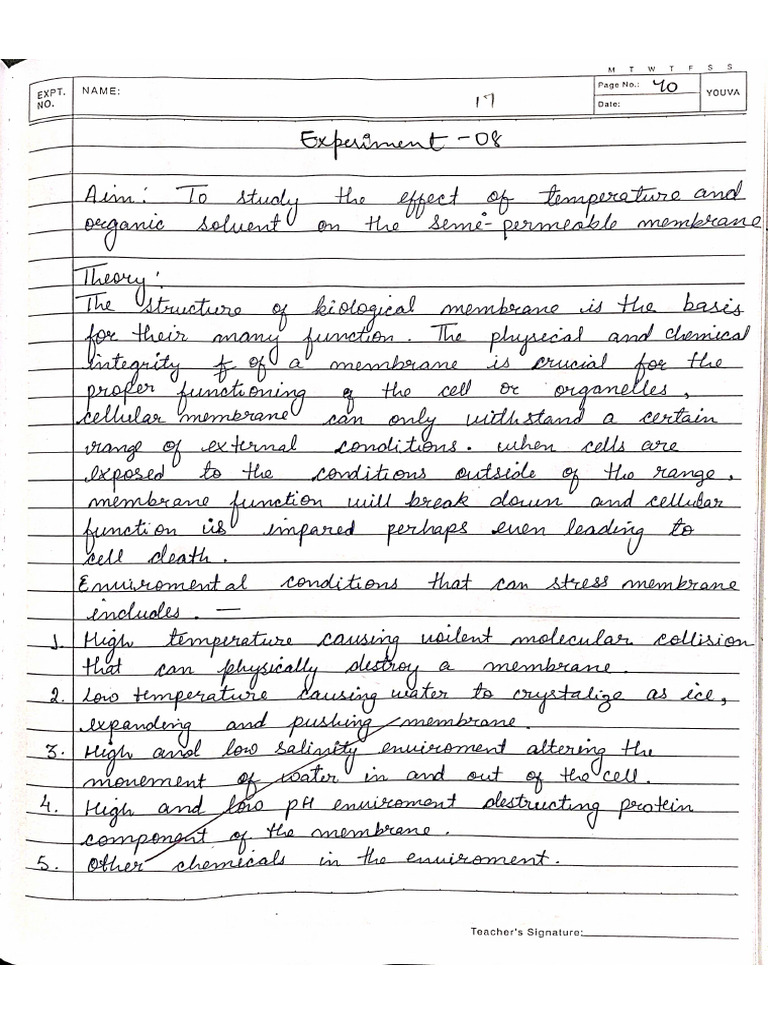 M T W T F S S
EXPT. NO.
NAME:
Page No.: 40
Date:
YOUVA
17
Experiment - 08
Aim: To study the effect of temperature and
organic solvent on the semi-permeable membrane
Theory:
The structure of biological membrane is the basis
for their many function. The physical and chemical
integrity of a membrane is crucial for the
proper functioning of the cell or organelles,
cellular membrane can only withstand a certain
range of external conditions. when cells are
exposed to the conditions outside of the range,
membrane function will break down and cellular
function is impared perhaps even leading to
cell death.
Enviromental conditions that can stress membrane
includes. —
1. High temperature causing voilent molecular collision
that can physically destroy a membrane.
2. Low temperature causing water to crystalize as ice,
expanding and pushing membrane.
3. High and low salinity enviroment altering the
movement of water in and out of the cell.
4. High and low pH enviroment destructing protein
component of the membrane.
5. Other chemicals in the enviroment.
Teacher's Signature: